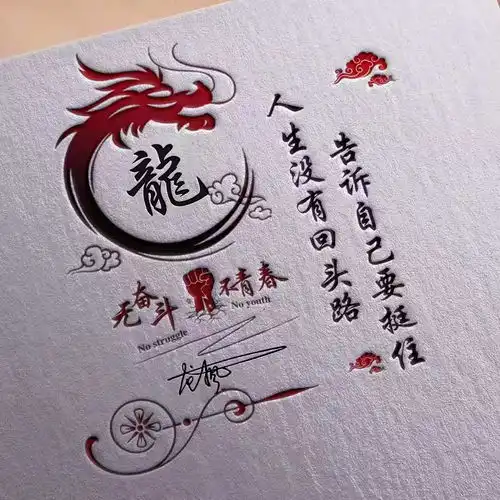 龍
无奋斗 不青春
No struggle No youth
龙枫
告诉自己要挺住
人生没有回头路